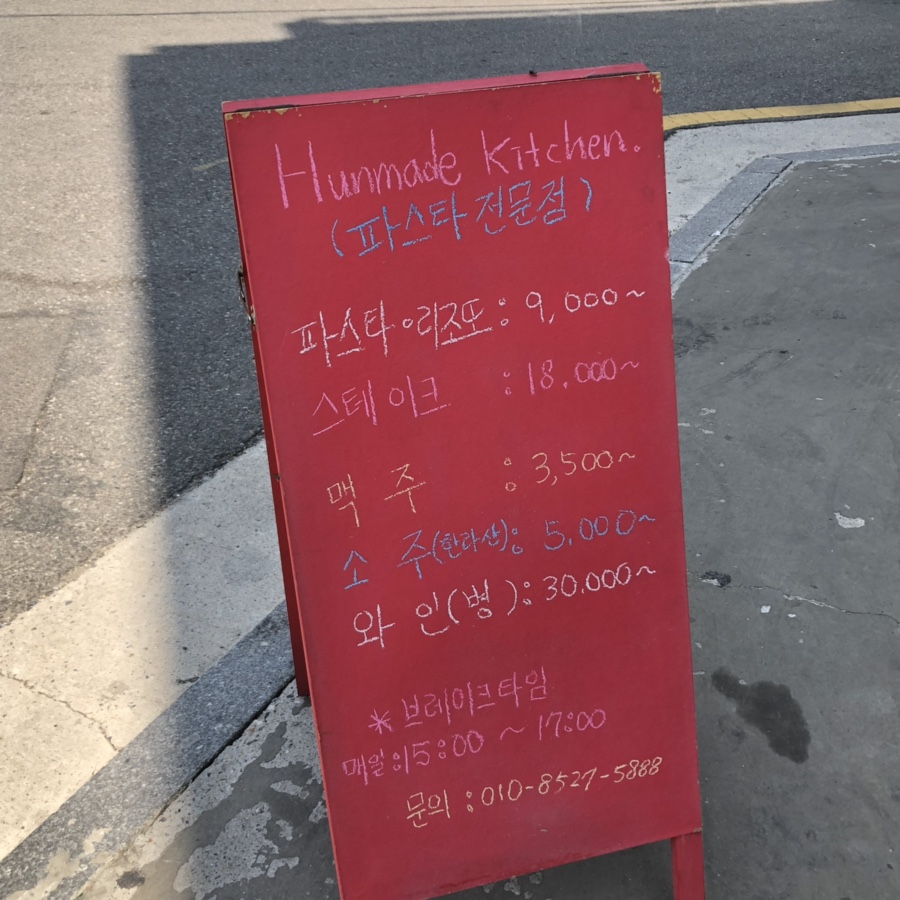 Hunmade Kitchen.
(파스타 전문점)
파스타·리조또 : 9,000~
스테이크 : 18.000~
맥 주 : 3,500~
소 주(한라산): 5.000~
와 인(병): 30.000~
*브레이크타임
매일:15:00 ~ 17:00
문의 : 010-8527-5888